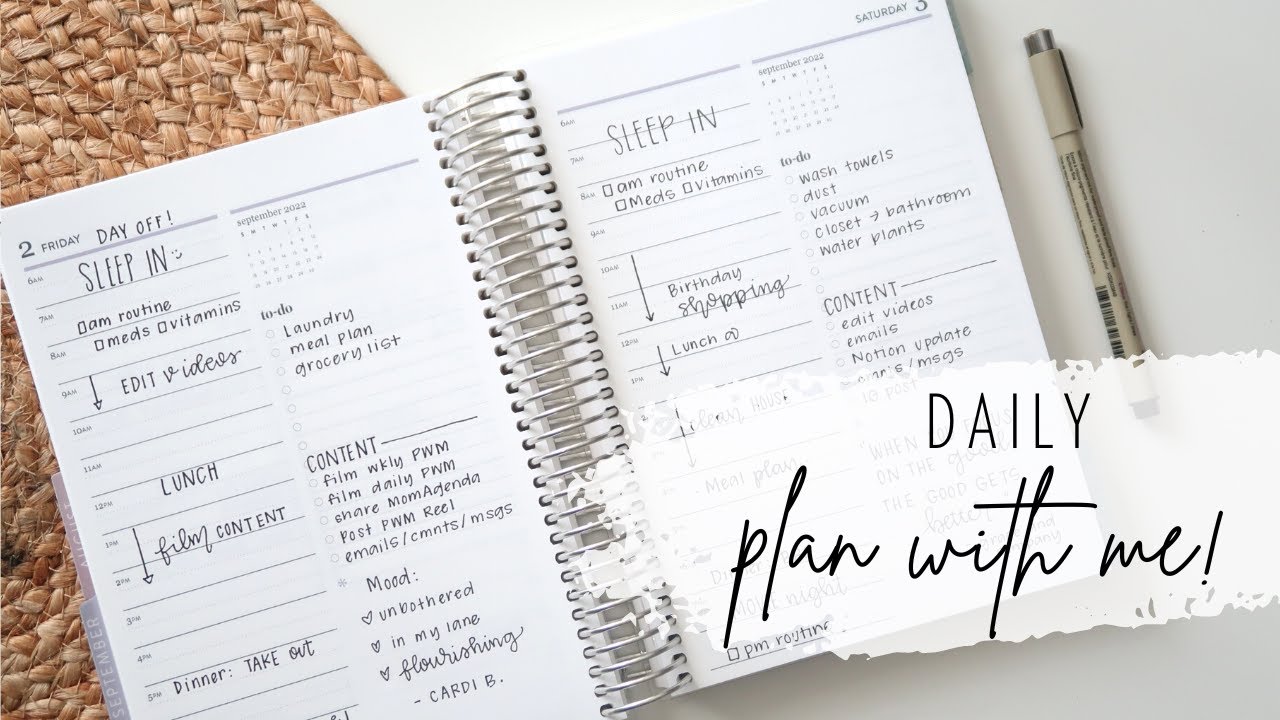 2 FRIDAY DAY OFF!
6AM
SLEEP IN
7AM
am routine
meds vitamins
8AM
EDIT videos
9AM
10AM
11AM
LUNCH
12PM
film CONTENT
1PM
2PM
3PM
4PM
Dinner: TAKE OUT
5PM
september 2022
S M T W T F S
to-do
Laundry
meal plan
grocery list
CONTENT
film wkly PWM
film daily PWM
share MomAgenda
Post PWM Reel
emails/cmnts/msgs
Mood:
unbothered
in my lane
flourishing
- CARDI B.
AUGUST
SEPTEMBER
SATURDAY 3
6AM
SLEEP IN
7AM
am routine
8AM
Meds vitamins
9AM
10AM
Birthday
11AM
shopping
12PM
Lunch
1PM
clean HOUSE
Meal plan
night
pm routine
september 2022
S M T W T F S
to-do
wash towels
dust
vacuum
closet → bathroom
water plants
CONTENT
edit videos
emails
Notion update
msgs
IG post
"WHEN
ON THE good
THE GOOD GETS
better"
DAILY
plan with me!